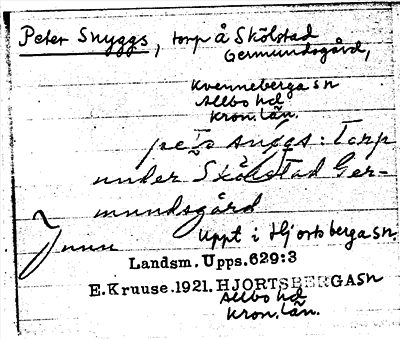 Peter Snyggs, torp å Skölstad
Germundsgård,
Kvenneberga sn
Allbo hd
Kron. län.
torp
under Skölstad Ger-
mundsgård
Uppt i Hjortsberga sn.
Landsm. Upps. 629:3
E. Kruuse. 1921. HJORTSBERGA sn
Allbo hd
Kron. län.